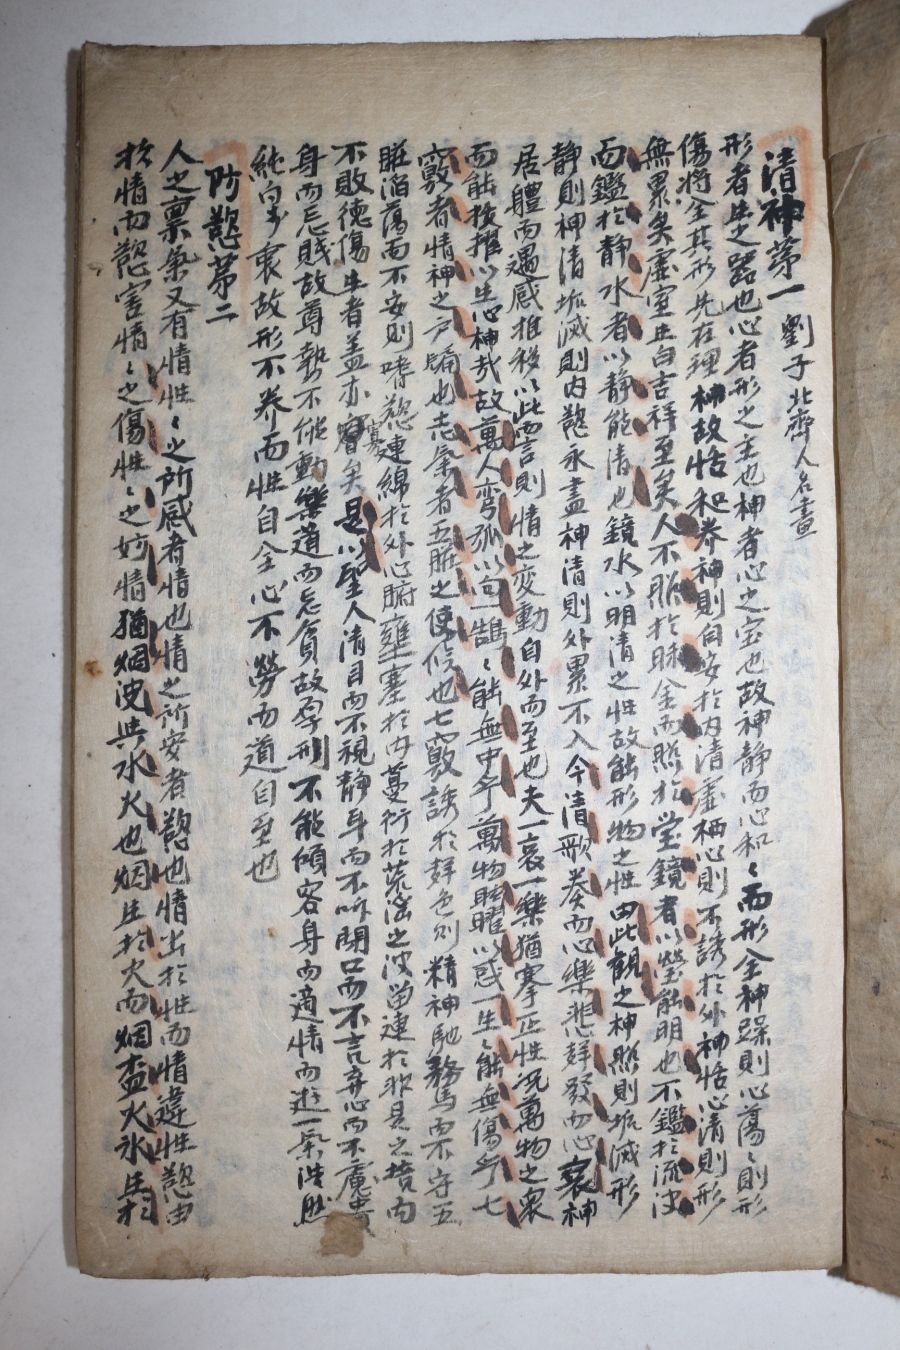 清神第一 劉子北齊人名晝
形者生之器也心者形之主也神者心之宝也故神静而心和〻而形全神躁則心蕩〻則形
傷将全其形先在理神故恬和养神則自安於内清虛栖心則不誘於外神恬心清則形
無累矣虛室生白吉祥至矣人不照於昧金而照於莹鏡者以瑩能明也不鑑於流波
而鑑於静水者以静能清也鏡水以明清之性故能形物之性由此觀之神照則垢滅形
静則神清垢滅則内慾永盡神清則外累不入今清歌奏而心樂悲聲發而心哀神
居體而遇感推移以此而言則情之変動自外而至也夫一哀一樂猶搴正性况萬物之衆
而能拔擢以生心神哉故萬人弯弧以向一鵠〻能無中乎萬物眩曜以惑一生〻能無傷乎七
竅者情神之户牖也志氣者五脏之使候也七竅誘於聲色則精神馳騖而不守五
脏滔蕩而不安則嗜慾連綿於外心腑壅塞於内蔓衍於荒淫之波留連於非是之境内
不敗德傷生者盖亦寡矣是以聖人清目而不視静耳而不听閉口而不言弃心而不慮貴
身而忘賎故尊勢不能動樂道而忘貧故厚利不能傾容身而適情而遊一氣浩然
純白于衷故形不养而性自全心不勞而道自至也
防慾第二
人之禀氣又有情性〻之所感者情也情之所安者慾也情出於性而情違性慾由
於情而慾害情〻之傷性〻之妨情猶烟波與水火也烟生於火而烟盃火氷生於